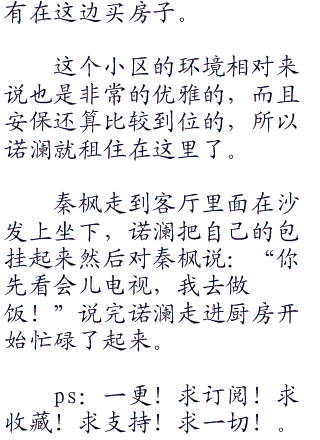 有在这边买房子。
这个小区的环境相对来
说也是非常的优雅的，而且
安保还算比较到位的，所以
诺澜就租住在这里了。
秦枫走到客厅里面在沙
发上坐下，诺澜把自己的包
挂起来然后对秦枫说：“你
先看会儿电视，我去做
饭！”说完诺澜走进厨房开
始忙碌了起来。
ps：一更！求订阅！求
收藏！求支持！求一切！。